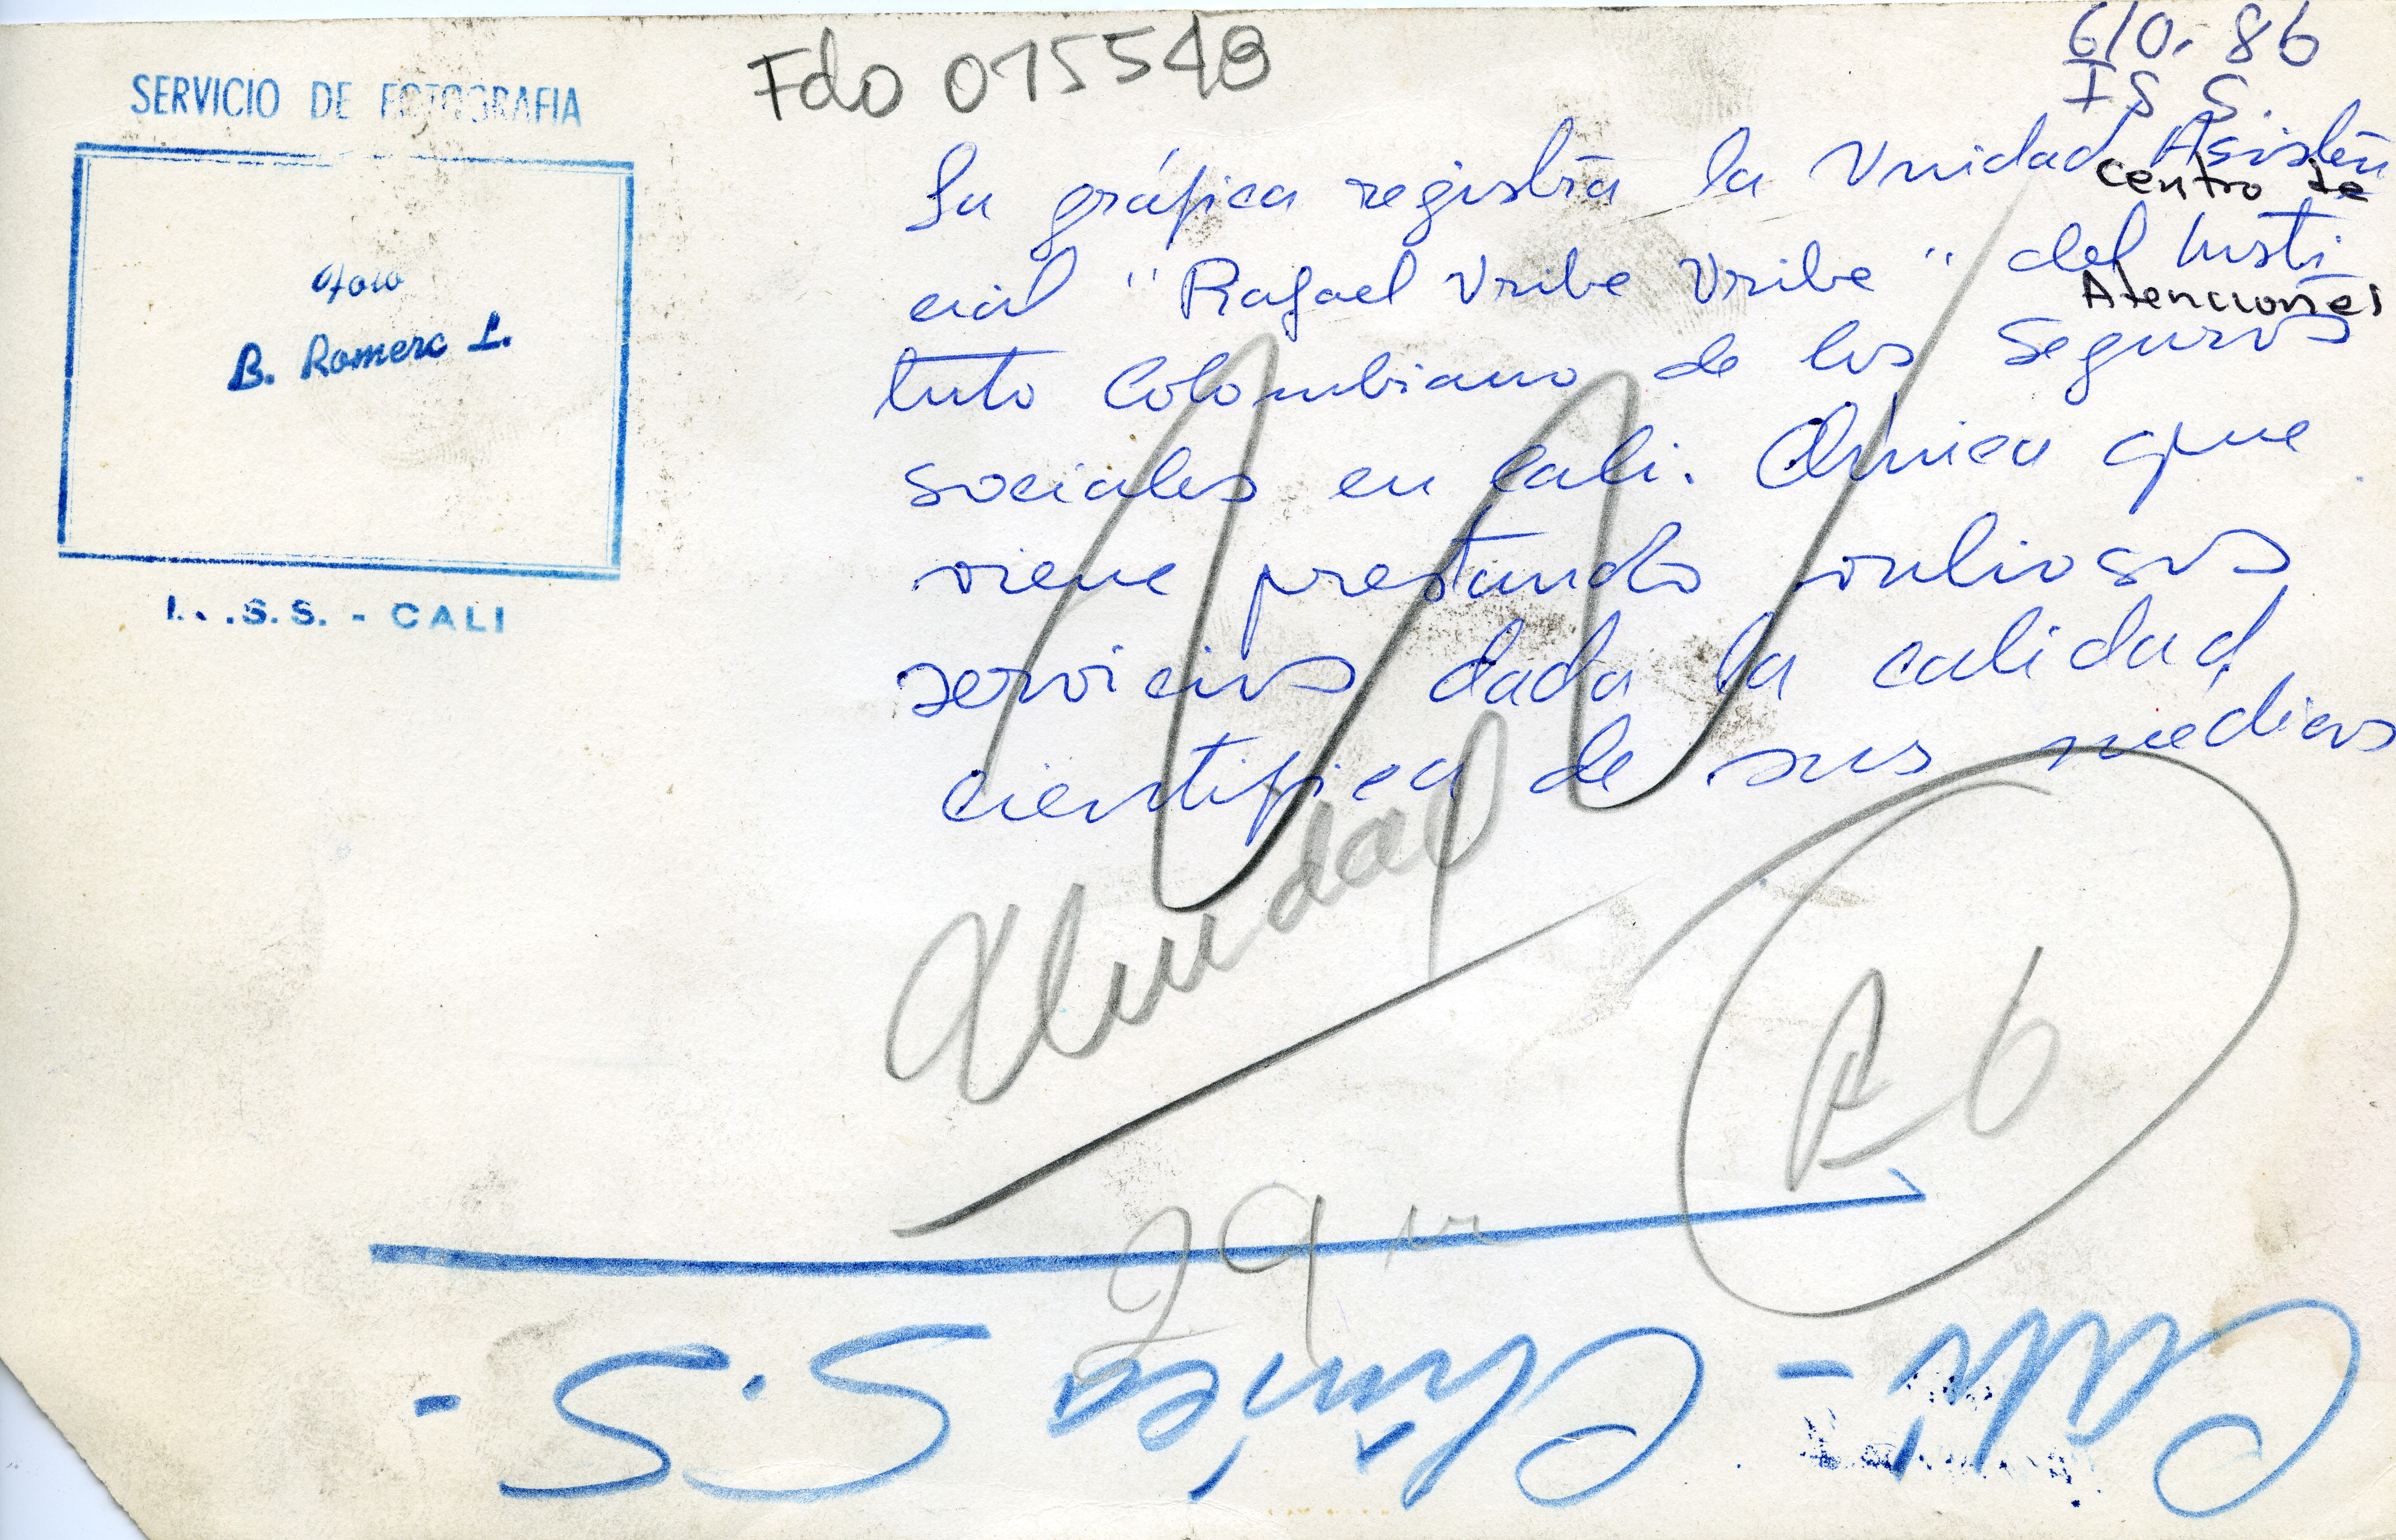 SERVICIO DE FOTOGRAFIA
Foto
B. Romero L.
I. .S.S. - CALI
Fdo 015548
610.86
I S S.
Centro de
Atenciones
La gráfica registra la Unidad Asisten
cial "Rafael Uribe Uribe" del Insti
tuto Colombiano de los Seguros
sociales en Cali. Clínica que
viene prestando valiosos
servicios dada la calidad
científica de sus médicos
R 6
29
Cali - Clínica S.S -